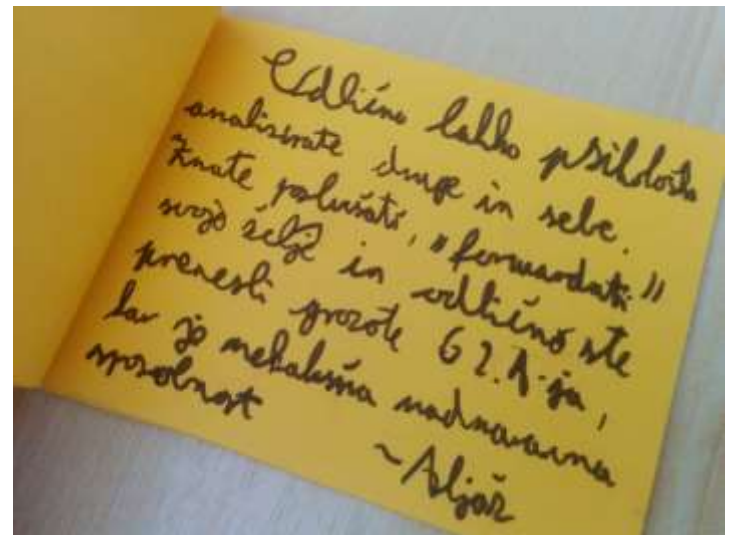 Odlično lahko psihološko
analizirate druge in sebe.
Znate poslušati, "forwardati"
svojo željo in odlično ste
prenesli grozote G2.A-ja,
kar je nekakšna nadnaravna
sposobnost
~Aljaž